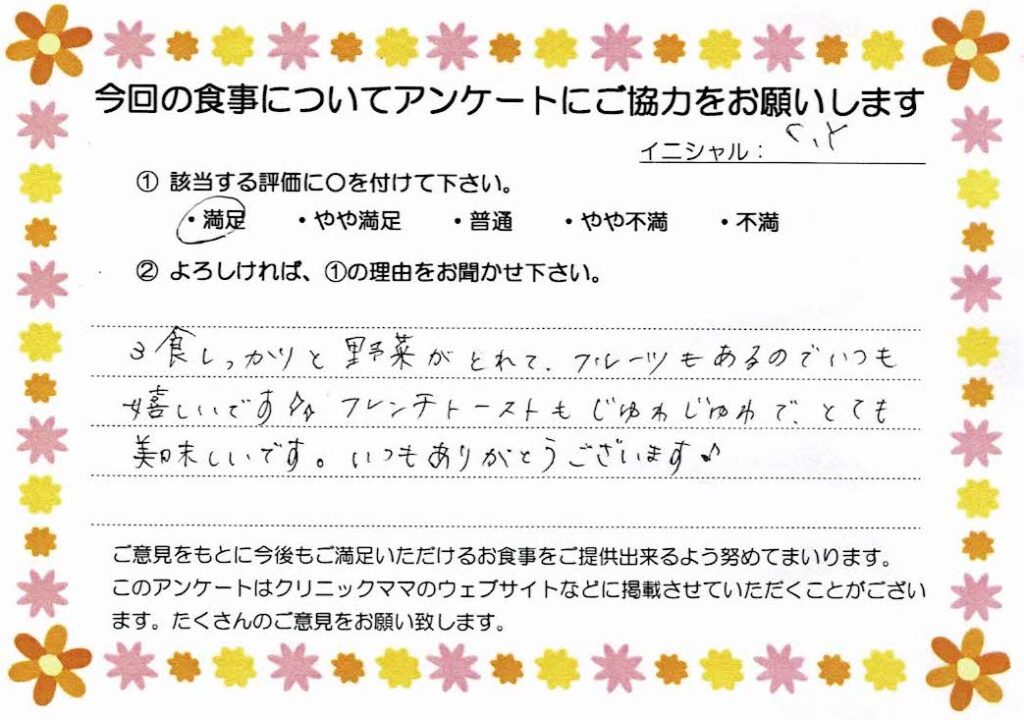 今回の食事についてアンケートにご協力をお願いします
イニシャル：
① 該当する評価に〇を付けて下さい。
・満足 ・やや満足 ・普通 ・やや不満 ・不満
② よろしければ、①の理由をお聞かせ下さい。
3食しっかりと野菜がとれて、フルーツもあるのでいつも
嬉しいです✧✧ フレンチトーストもじゅわじゅわで、とても
美味しいです。いつもありがとうございます♪
ご意見をもとに今後もご満足いただけるお食事をご提供出来るよう努めてまいります。
このアンケートはクリニックママのウェブサイトなどに掲載させていただくことがござい
ます。たくさんのご意見をお願い致します。